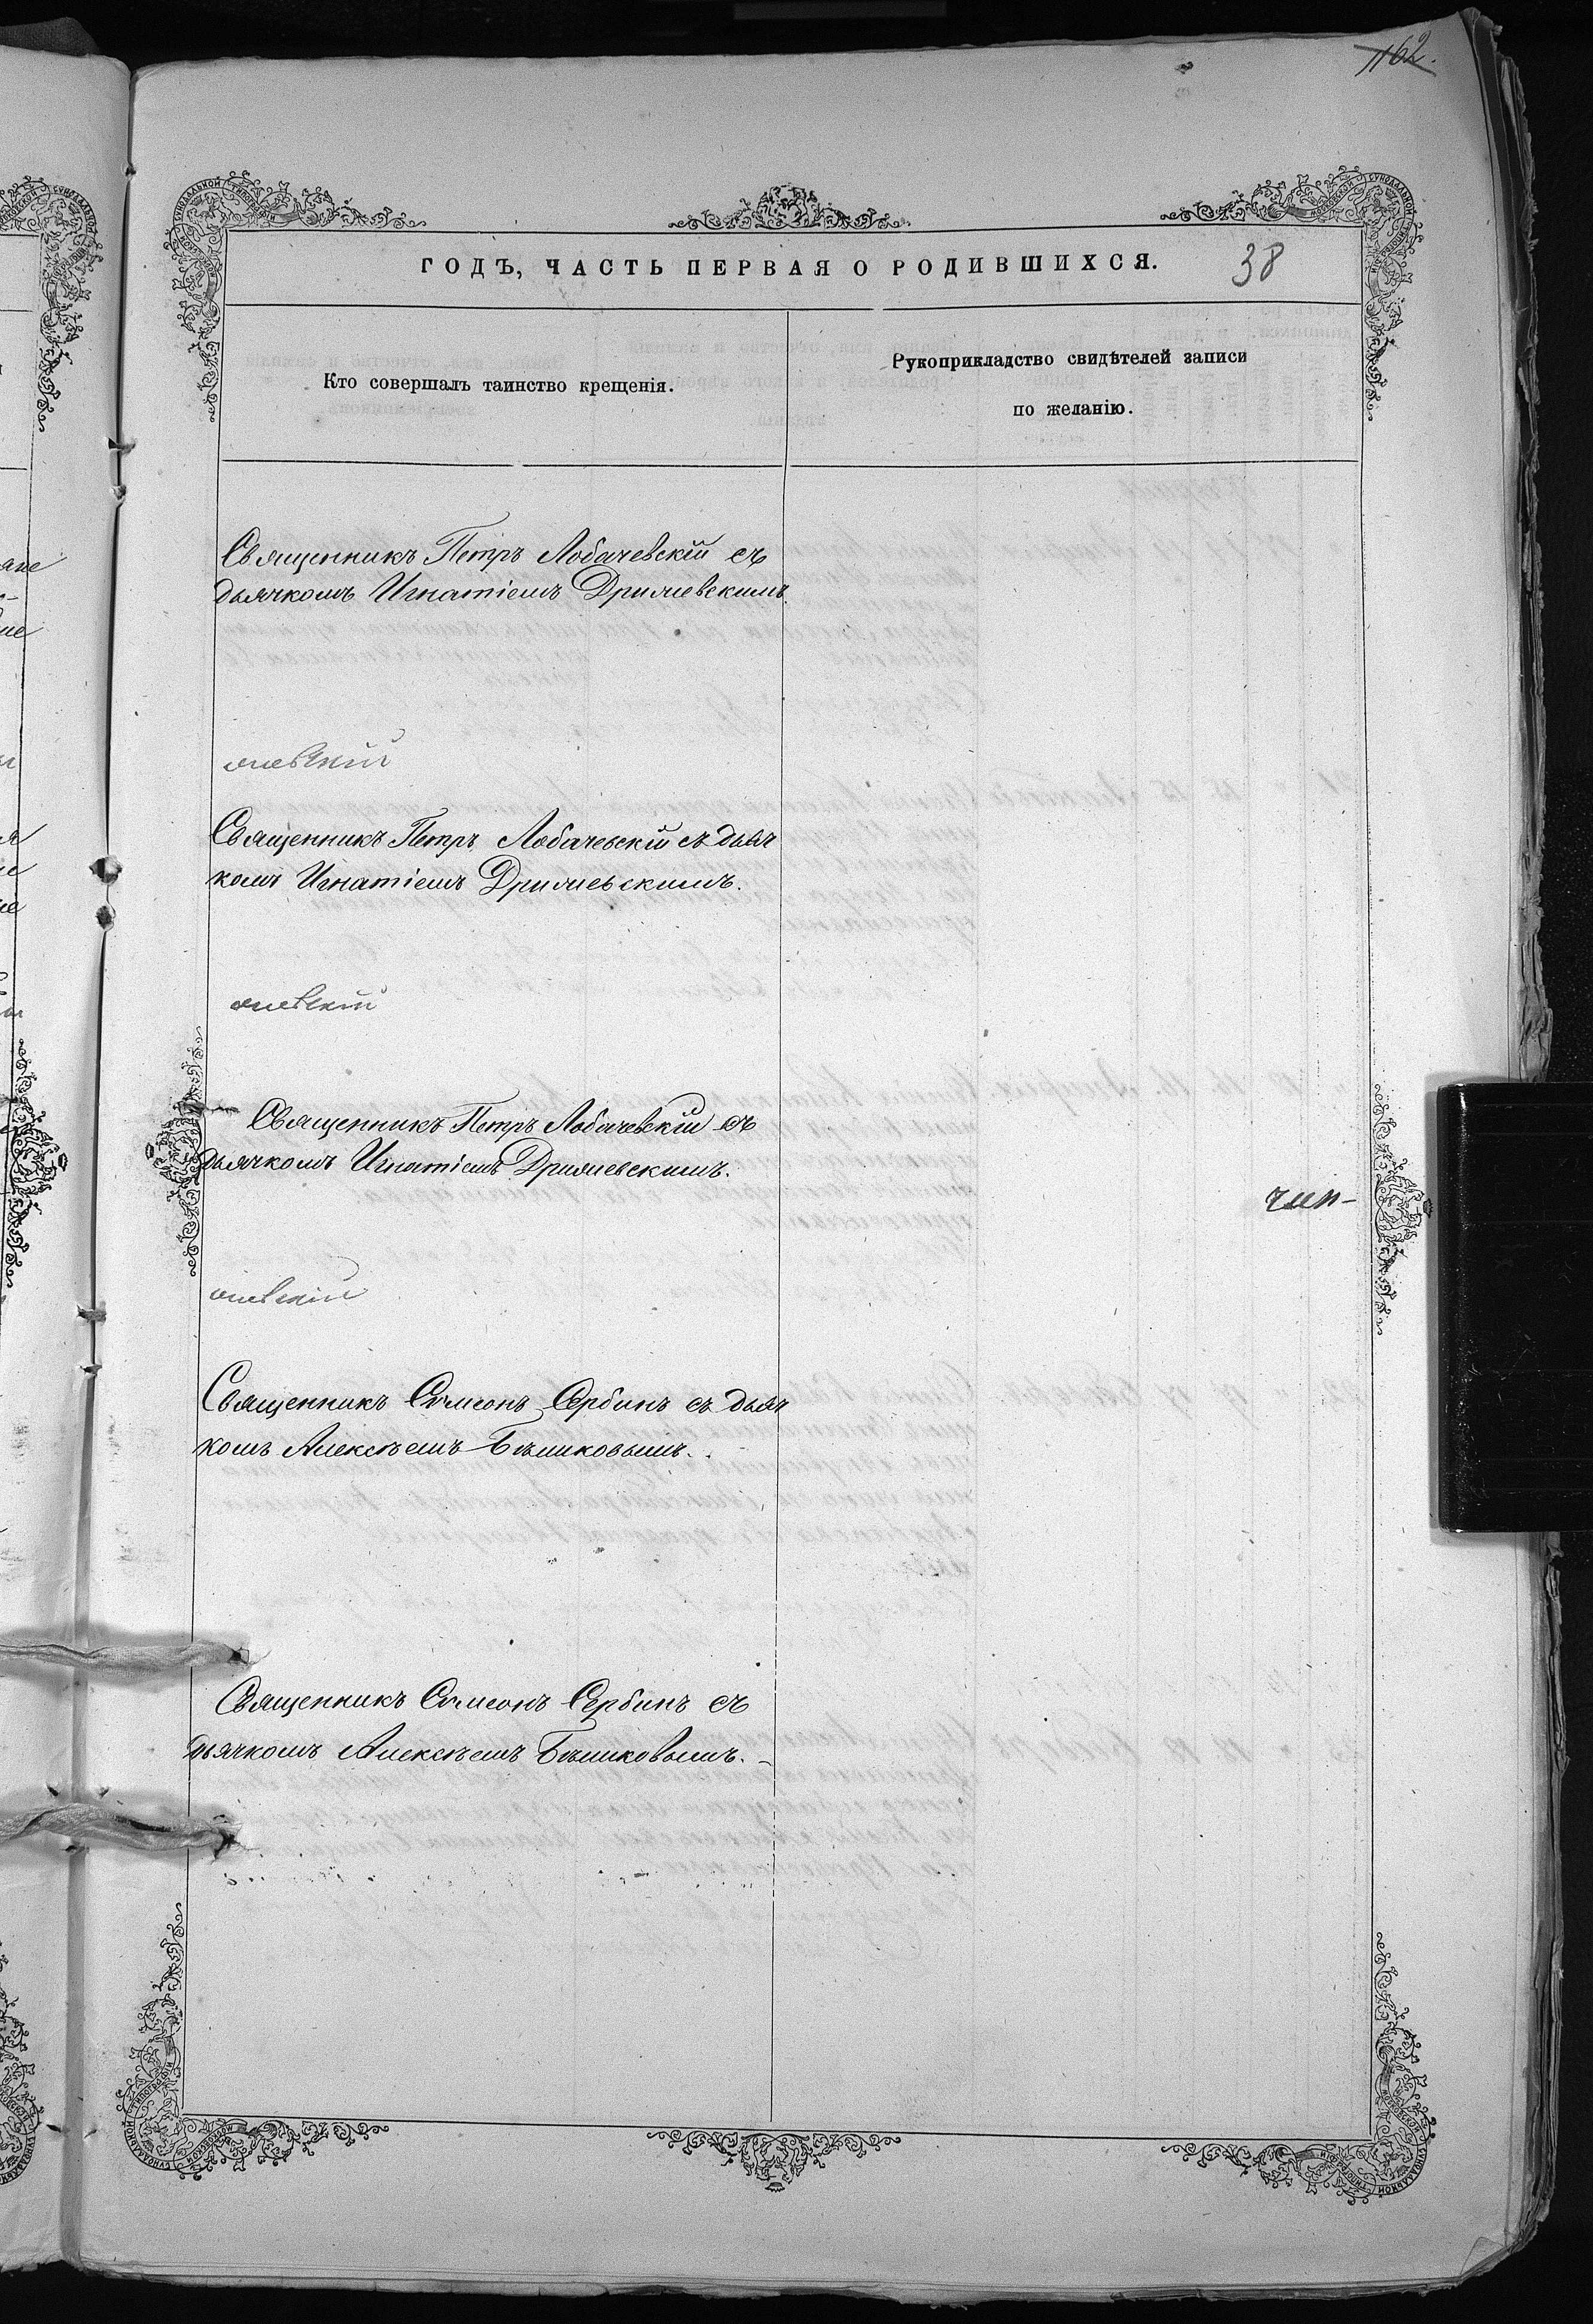 1162.
ГОДЪ, ЧАСТЬ ПЕРВАЯ О РОДИВШИХСЯ. 38
Кто совершалъ таинство крещенія.
Рукоприкладство свидѣтелей записи
по желанію.
Священникъ Петръ Лобачевскій съ
дьячкомъ Игнатіемъ Дрилиевскимъ.
Священникъ Петръ Лобачевскій съ дьяч
комъ Игнатіемъ Дрилиевскимъ.
Священникъ Петръ Лобачевскій съ
дьячкомъ Игнатіемъ Дрилиевскимъ.
Священникъ Симеонъ Сербинъ съ дьяч
комъ Алексѣемъ Бѣликовымъ.
Священникъ Симеонъ Сербинъ съ
дьячкомъ Алексѣемъ Бѣликовымъ.